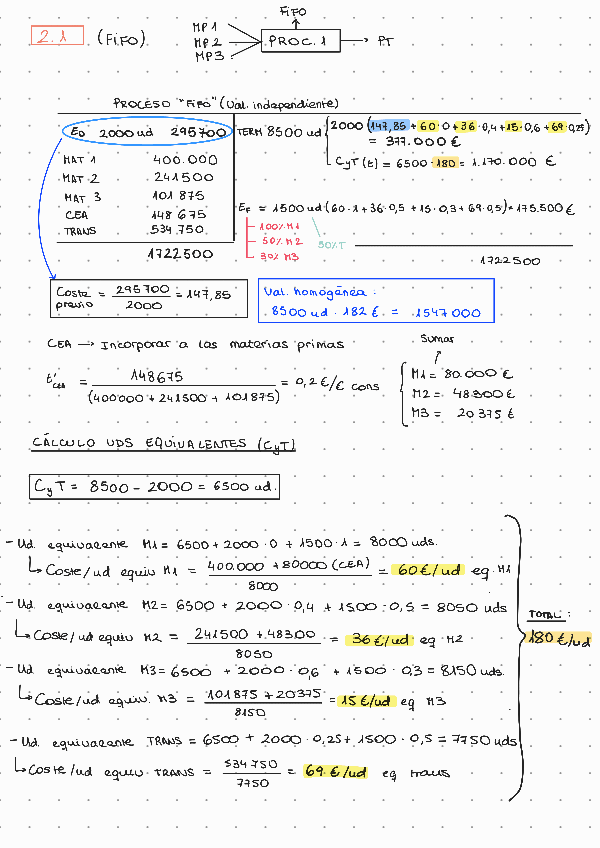 2.1 (FIFO)
FIFO
MP1
MP2
MP3
PROC. 1
PT
PROCESO "FIFO" (Val. independiente)
E0 2000 ud 295700
TERM 8500 ud
2000 (147,85 + 60·0 + 36·0,4 + 15·0,6 + 69·0,25)
= 377.000 €
CyT (t) = 6500 · 180 = 1.170.000 €
MAT 1 400.000
MAT 2 241500
MAT 3 101875
CEA 148675
TRANS 534.750
1722500
EF = 1500 ud (60·1 + 36·0,5 + 15·0,3 + 69·0,5) = 175.500 €
100% M1
50% M2
30% M3
50% T
1722500
Coste previo = 295700 / 2000 = 147,85
Val. homogénea:
8500 ud · 182 € = 1547000
CEA → Incorporar a las materias primas
t'CEA = 148675 / (400000 + 241500 + 101875) = 0,2 €/€ cons
Sumar
M1 = 80.000 €
M2 = 48.300 €
M3 = 20375 €
CÁLCULO UDS EQUIVALENTES (CyT)
CyT = 8500 - 2000 = 6500 ud.
- Ud. equivalente M1 = 6500 + 2000·0 + 1500·1 = 8000 uds.
Coste/ud equiv M1 = 400.000 + 80000 (CEA) / 8000 = 60 €/ud eq. M1
- Ud. equivalente M2 = 6500 + 2000·0,4 + 1500·0,5 = 8050 uds
Coste/ud equiv M2 = 241500 + 48300 / 8050 = 36 €/ud eq M2
- Ud. equivalente M3 = 6500 + 2000·0,6 + 1500·0,3 = 8150 uds.
Coste/ud equiv. M3 = 101875 + 20375 / 8150 = 15 €/ud eq M3
- Ud. equivalente TRANS = 6500 + 2000·0,25 + 1500·0,5 = 7750 uds
Coste/ud equiv. TRANS = 534750 / 7750 = 69 €/ud eq trans
TOTAL:
180 €/ud